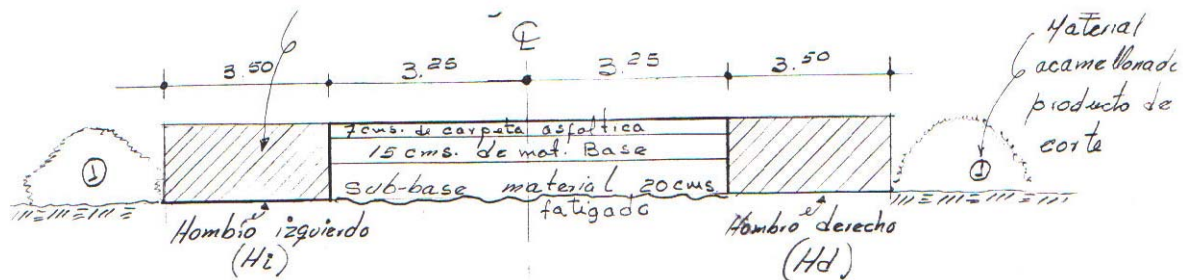 ℄
3.50 3.25 3.25 3.50
Material
acamellonado
producto de
corte
7 cms. de carpeta asfáltica
15 cms. de mat. Base
sub-base material 20 cms.
fatigado
1
1
Hombro izquierdo
(Hi)
Hombro derecho
(Hd)